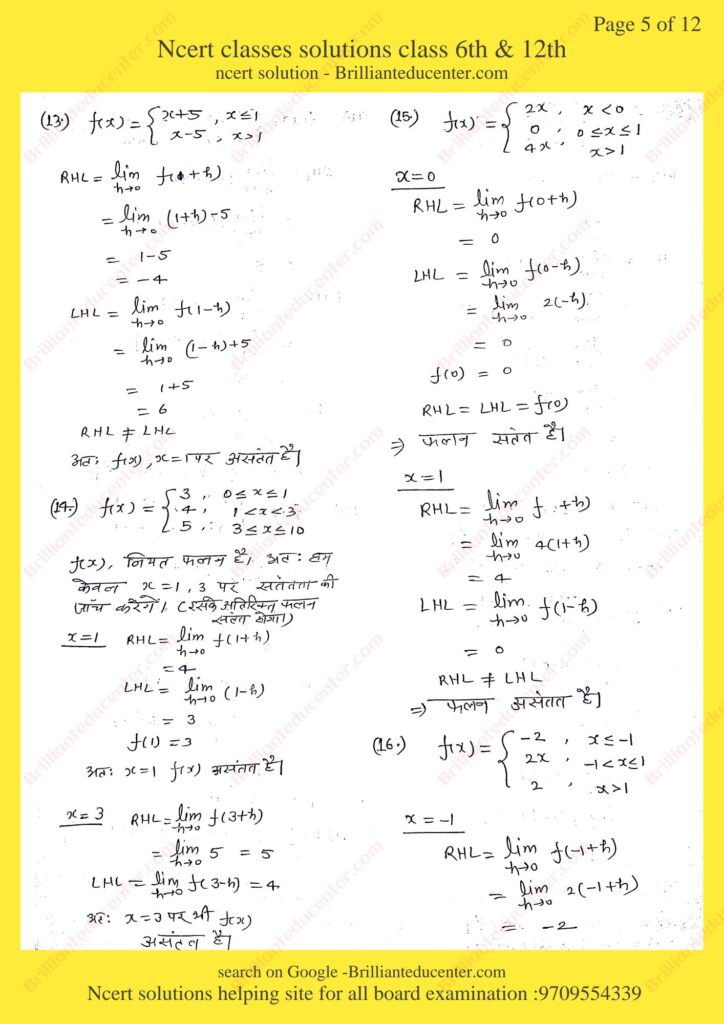 Page 5 of 12
Ncert classes solutions class 6th & 12th
ncert solution - Brillianteducenter.com
(13.) f(x) = { x+5 , x≤1
x-5 , x>1
RHL = lim h→0 f(1+h)
= lim h→0 (1+h)-5
= 1-5
= -4
LHL = lim h→0 f(1-h)
= lim h→0 (1-h)+5
= 1+5
= 6
RHL ≠ LHL
अतः f(x), x=1 पर असंतत है।
(14.) f(x) = { 3 , 0≤x≤1
4 , 1<x<3
5 , 3≤x≤10
f(x), नियत फलन है। अतः हम
केवल x=1, 3 पर सततता की
जाँच करेंगे। (इसके अतिरिक्त फलन
सतत होगा।)
x=1 RHL = lim h→0 f(1+h)
= 4
LHL = lim h→0 (1-h)
= 3
f(1) = 3
अतः x=1 f(x) असंतत है।
x=3 RHL = lim h→0 f(3+h)
= lim h→0 5 = 5
LHL = lim h→0 f(3-h) = 4
अतः x=3 पर भी f(x)
असंतत है।
(15.) f(x) = { 2x , x<0
0 , 0≤x≤1
4x , x>1
x=0
RHL = lim h→0 f(0+h)
= 0
LHL = lim h→0 f(0-h)
= lim h→0 2(-h)
= 0
f(0) = 0
RHL = LHL = f(0)
⇒ फलन सतत है।
x=1
RHL = lim h→0 f +h)
= lim h→0 4(1+h)
= 4
LHL = lim h→0 f(1-h)
= 0
RHL ≠ LHL
⇒ फलन असतत है।
(16.) f(x) = { -2 , x≤-1
2x , -1<x≤1
2 , x>1
x=-1
RHL = lim h→0 f(-1+h)
= lim h→0 2(-1+h)
= -2
search on Google -Brillianteducenter.com
Ncert solutions helping site for all board examination :9709554339